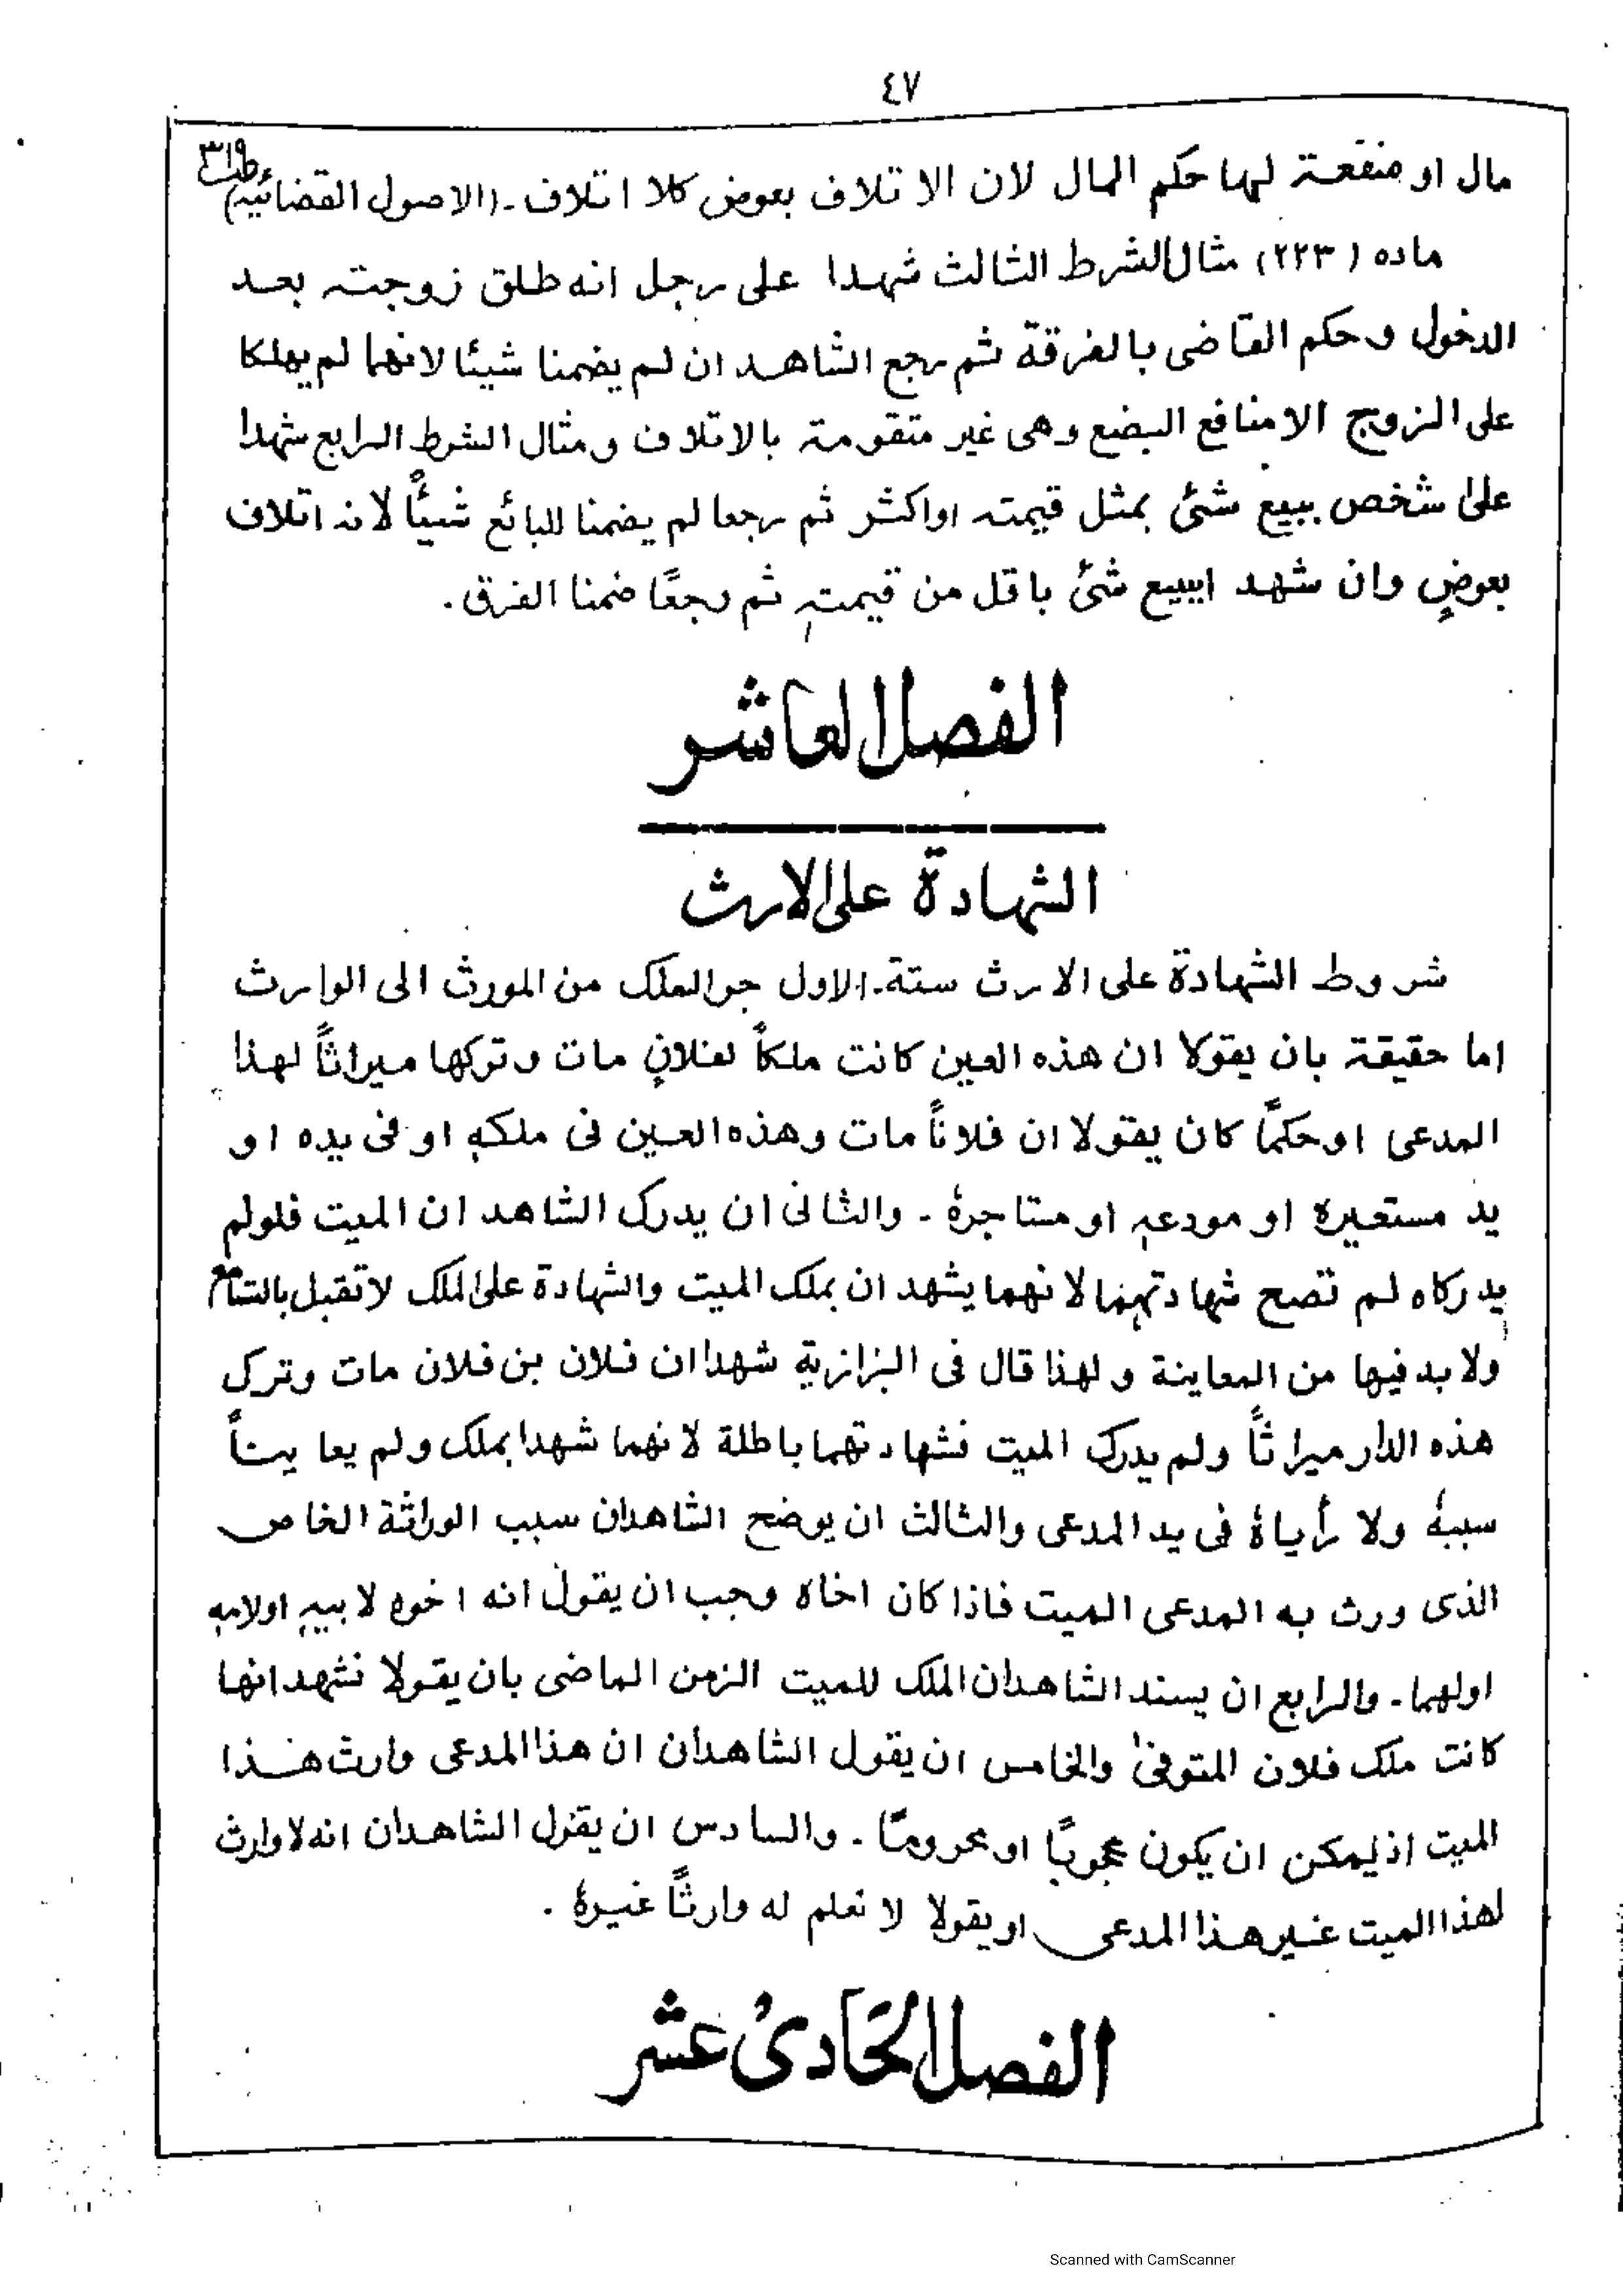 ٤٧
مال او منفعة لها حكم المال لان الا تلاف بعوض كلا اتلاف ـ (الاصول القضائية) ٣١٩
ماده (٢٢٣) مثال الشرط الثالث شهدا على رجل انه طلق زوجته بعد
الدخول وحكم القاضى بالفرقة ثم رجع الشاهد ان لم يضمنا شيئا لانهما لم يهلكا
على الزوج الا منافع البضع وهى غير متقومة بالاتلاف ومثال الشرط الرابع شهدا
على شخص ببيع شئ بمثل قيمته او اكثر ثم رجعا لم يضمنا للبائع شيئاً لانه اتلاف
بعوضٍ وان شهد ا ببيع شئ باقل من قيمته ثم رجعًا ضمنا الفرق.
الفصل العاشر
الشهادة على الارث
شروط الشهادة على الارث ستة ـ الاول جر الملك من المورث الى الوارث
اما حقيقة بان يقولا ان هذه العين كانت ملكاً لفلانٍ مات وتركها ميراثاً لهذا
المدعى او حكمًا كان يقولا ان فلاناً مات وهذه العين فى ملكه او فى يده او
يد مستعيره او مودعه او مستاجرهٔ ـ والثانى ان يدرك الشاهد ان الميت فلو لم
يدركاه لم تصح شهادتهما لانهما يشهد ان بملك الميت والشهادة على الملك لا تقبل بالتسامع
ولا بد فيها من المعاينة ولهذا قال فى البزازية شهدا ان فلان بن فلان مات وترك
هذه الدار ميراثاً ولم يدرك الميت فشهادتهما باطلة لانهما شهدا بملك ولم يعا ينا
سببهٔ ولا رأياهٔ فى يد المدعى والثالث ان يوضح الشاهدان سبب الوراثة الخاص
الذى ورث به المدعى الميت فاذا كان اخاه وجب ان يقول انه اخوه لابيه او لامه
او لهما ـ والرابع ان يسند الشاهدان الملك للميت الزمن الماضى بان يقولا نشهد انها
كانت ملك فلان المتوفىٰ والخامس ان يقول الشاهدان ان هذا المدعى وارث هذا
الميت اذ يمكن ان يكون محجوبًا او محرومًا ـ والسادس ان يقول الشاهدان انه لا وارث
لهذا الميت غير هذا المدعى او يقولا لا نعلم له وارثاً غيرهٔ .
الفصل الحادى عشر
Scanned with CamScanner